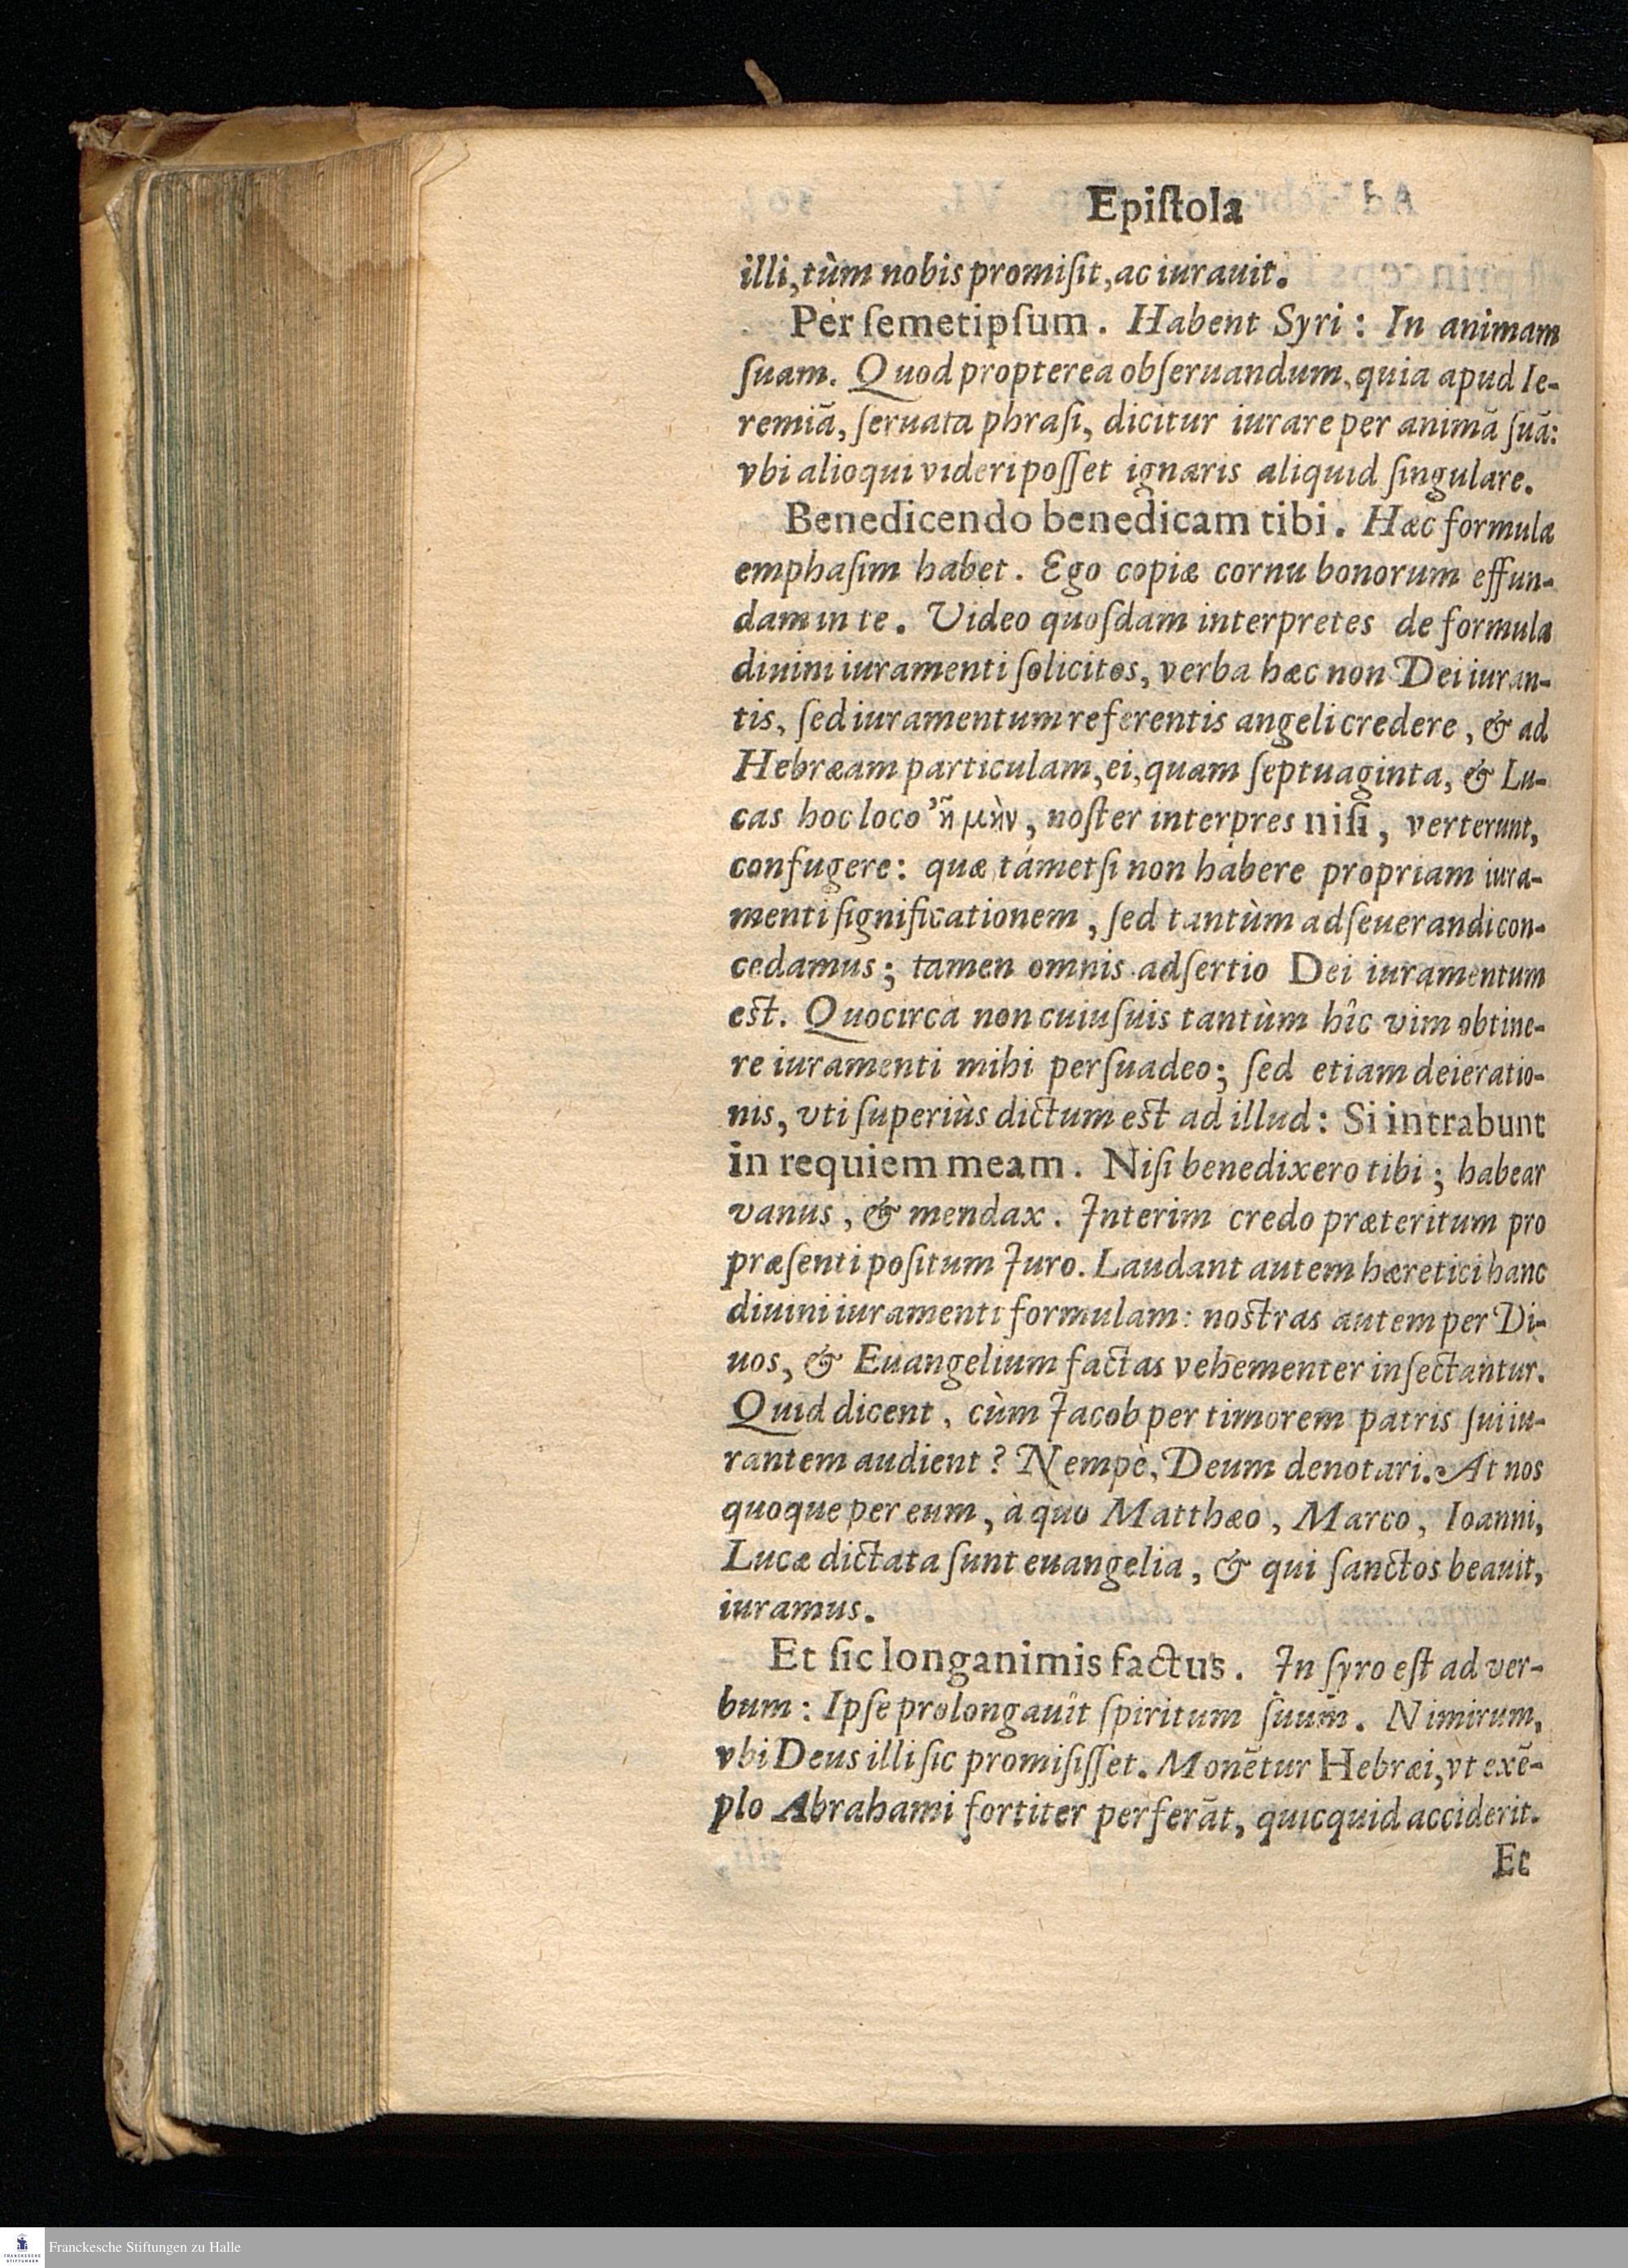 Epiſtola
illi, tùm nobis promiſit, ac iurauit.
Per ſemetipſum. Habent Syri: In animam
ſuam. Quod propterea obſeruandum, quia apud Ie-
remiã, ſeruata phraſi, dicitur iurare per animã ſuã:
vbi alioqui videri poſſet ignaris aliquid ſingulare.
Benedicendo benedicam tibi. Hæc formula
emphaſim habet. Ego copiæ cornu bonorum effun-
dam in te. Video quoſdam interpretes de formula
diuini iuramenti ſolicitos, verba hæc non Dei iuran-
tis, ſed iuramentum referentis angeli credere, & ad
Hebræam particulam, ei, quam ſeptuaginta, & Lu-
cas hoc loco ἦ μὴν, noſter interpres niſi, verterunt,
confugere: quæ támetſi non habere propriam iura-
menti ſignificationem, ſed tantùm adſeuerandi con-
cedamus; tamen omnis adſertio Dei iuramentum
eſt. Quocirca non cuiuſuis tantùm hîc vim obtine-
re iuramenti mihi perſuadeo; ſed etiam deieratio-
nis, vti ſuperiùs dictum eſt ad illud: Si intrabunt
in requiem meam. Niſi benedixero tibi; habear
vanus, & mendax. Interim credo præteritum pro
præſenti poſitum Iuro. Laudant autem hæretici hanc
diuini iuramenti formulam: noſtras autem per Di-
uos, & Euangelium factas vehementer inſectantur.
Quid dicent, cùm Iacob per timorem patris ſui iu-
rantem audient? Nempè, Deum denotari. At nos
quoque per eum, à quo Matthæo, Marco, Ioanni,
Lucæ dictata ſunt euangelia, & qui ſanctos beauit,
iuramus.
Et ſic longanimis factus. In ſyro eſt ad ver-
bum: Ipſe prolongauit ſpiritum ſuum. Nimirum,
vbi Deus illi ſic promiſiſſet. Monẽtur Hebræi, vt exẽ-
plo Abrahami fortiter perferãt, quicquid acciderit.
Et
Franckesche Stiftungen zu Halle